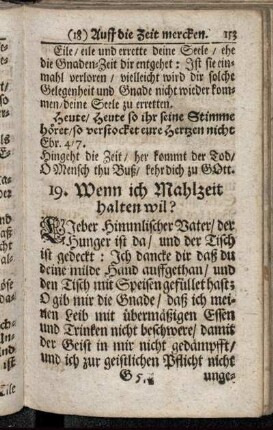 (18) Auff die Zeit mercken. 153
Eile/ eile und errette deine Seele/ ehe
die Gnaden-Zeit dir entgehet: Ist sie ein-
mahl verloren/ vielleicht wird dir solche
Gelegenheit und Gnade nicht wieder kom-
men/ deine Seele zu erretten.
Heute/ Heute so ihr seine Stimme
höret/ so verstocket eure Hertzen nicht
Ebr. 4/7.
Hingeht die Zeit/ her kommt der Tod/
O Mensch thu Buß/ kehr dich zu GOtt.
19. Wenn ich Mahlzeit
halten wil?
LIeber Himmlischer Vater/ der
Hunger ist da/ und der Tisch
ist gedeckt: Ich dancke dir daß du
deine milde Hand auffgethan/ und
den Tisch mit Speisen gefüllet hast:
O gib mir die Gnade/ daß ich mei-
nen Leib mit übermäßigen Essen
und Trincken nicht beschwere/ damit
der Geist in mir nicht gedämpfft/
und ich zur geistlichen Pflicht nicht
G 5 unge-